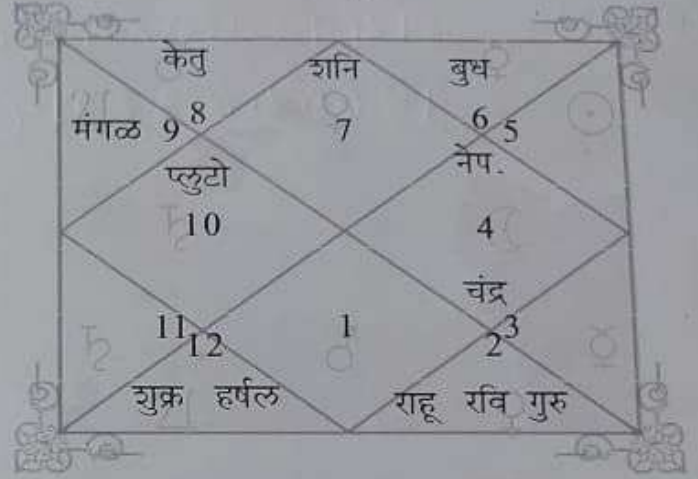 केतु शनि बुध
मंगळ 9 8 7 6 5
प्लुटो नेप.
10 4
चंद्र
11 12 1 2 3
शुक्र हर्षल राहू रवि गुरु